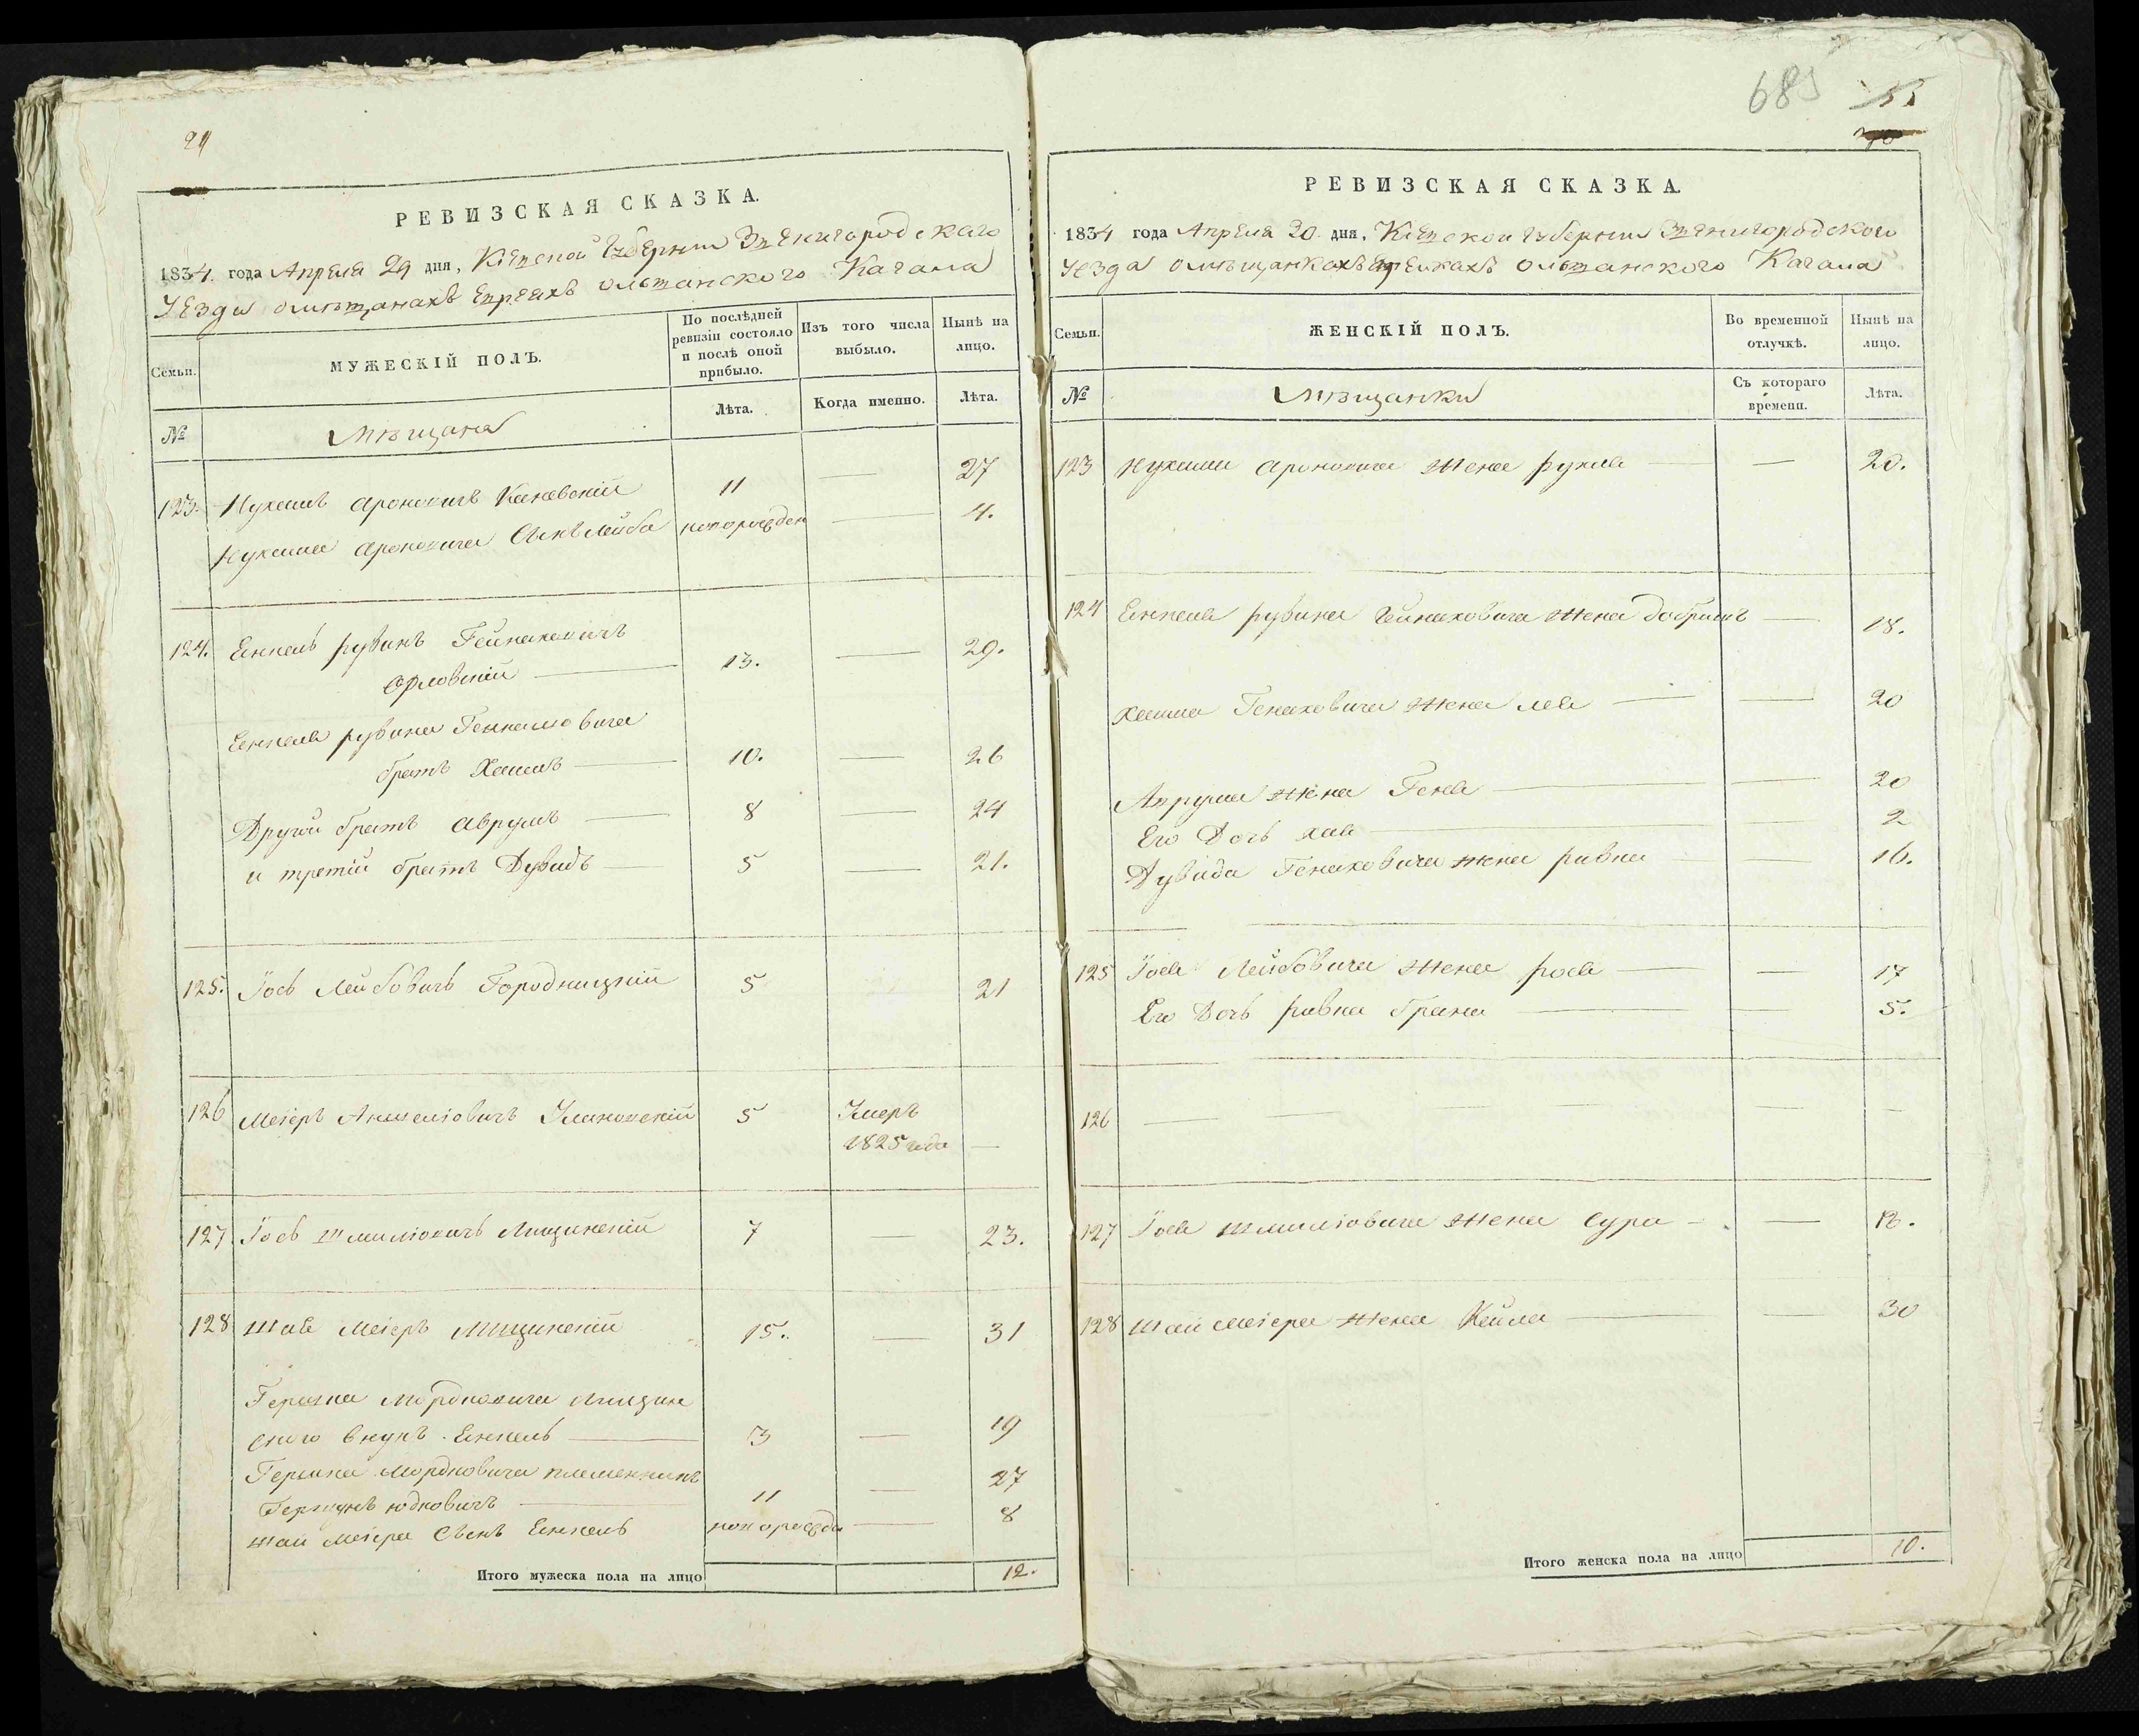 24
РЕВИЗСКАЯ СКАЗКА.
1834. года Апреля 29 дня, Кіевской Губерніи Звенигородскаго
Уезда омѣщанахъ Евреяхъ Олшанского Кагала
Семьи.
МУЖЕСКІЙ ПОЛЪ.
По послѣдней ревизіи состояло и послѣ оной прибыло.
Изъ того числа выбыло.
Нынѣ на лицо.
№
Мѣщана
Лѣта.
Когда именно.
Лѣта.
123. Нухимъ Ароновичъ Каневскій 11 — 27
Нухима Ароновича Сынъ Лейба новорожден — 4.
124. Янкель Рувинъ Гейнаховичъ
Орловскій — 13. — 29.
Янкеля Рувина
братъ Хаимъ — 10. — 26
Другой братъ Аврумъ — 8 — 24
и третій братъ Дувидъ — 5 — 21.
125. Іось Лейбовичъ Городницкій 5 21
126 Меіеръ Аншелiовичъ 5 Умеръ
1825 года —
127 Іось Шмилiовичъ Лищинскій 7 — 23.
128 Шая Меіеръ Лищинскій 15. — 31
Гершка Мордковича Лищин
ского внукъ Янкель — 3 — 19
Гершка Мордковича племенникъ
Гершунъ Юдковичъ — 11 — 27
Шаи Меіера Сынъ Янкель новорожде — 8
Итого мужеска пола на лицо 12.
685
РЕВИЗСКАЯ СКАЗКА.
1834 года Апреля 30 дня, Кіевской Губерніи Звенигородского
Уезда омѣщанкахъ Еврейкахъ Олшанского Кагала
Семьи.
ЖЕНСКІЙ ПОЛЪ.
Во временной отлучкѣ.
Нынѣ на лицо.
№
Мѣщанки
Съ котораго времени.
Лѣта.
123 Нухима Ароновича жена Рухля — — 20.
124 Янкеля Рувина Гейнаховича жена Добришъ — 18.
Хаима Генаховича жена Лея — — 20
Аврума жена Геня — — 20
Его Дочь Хая — — 2
Дувида Генаховича жена Ривка — 16.
125 Іося Лейбовича жена Рося — — 17
Его Дочь Ривка Брана — — 5.
126 — — — — —
127 Іося Шмилiовича жена Сура — — 18.
128 Шаи Меіера жена Кейла — — 30
Итого женска пола на лицо 10.